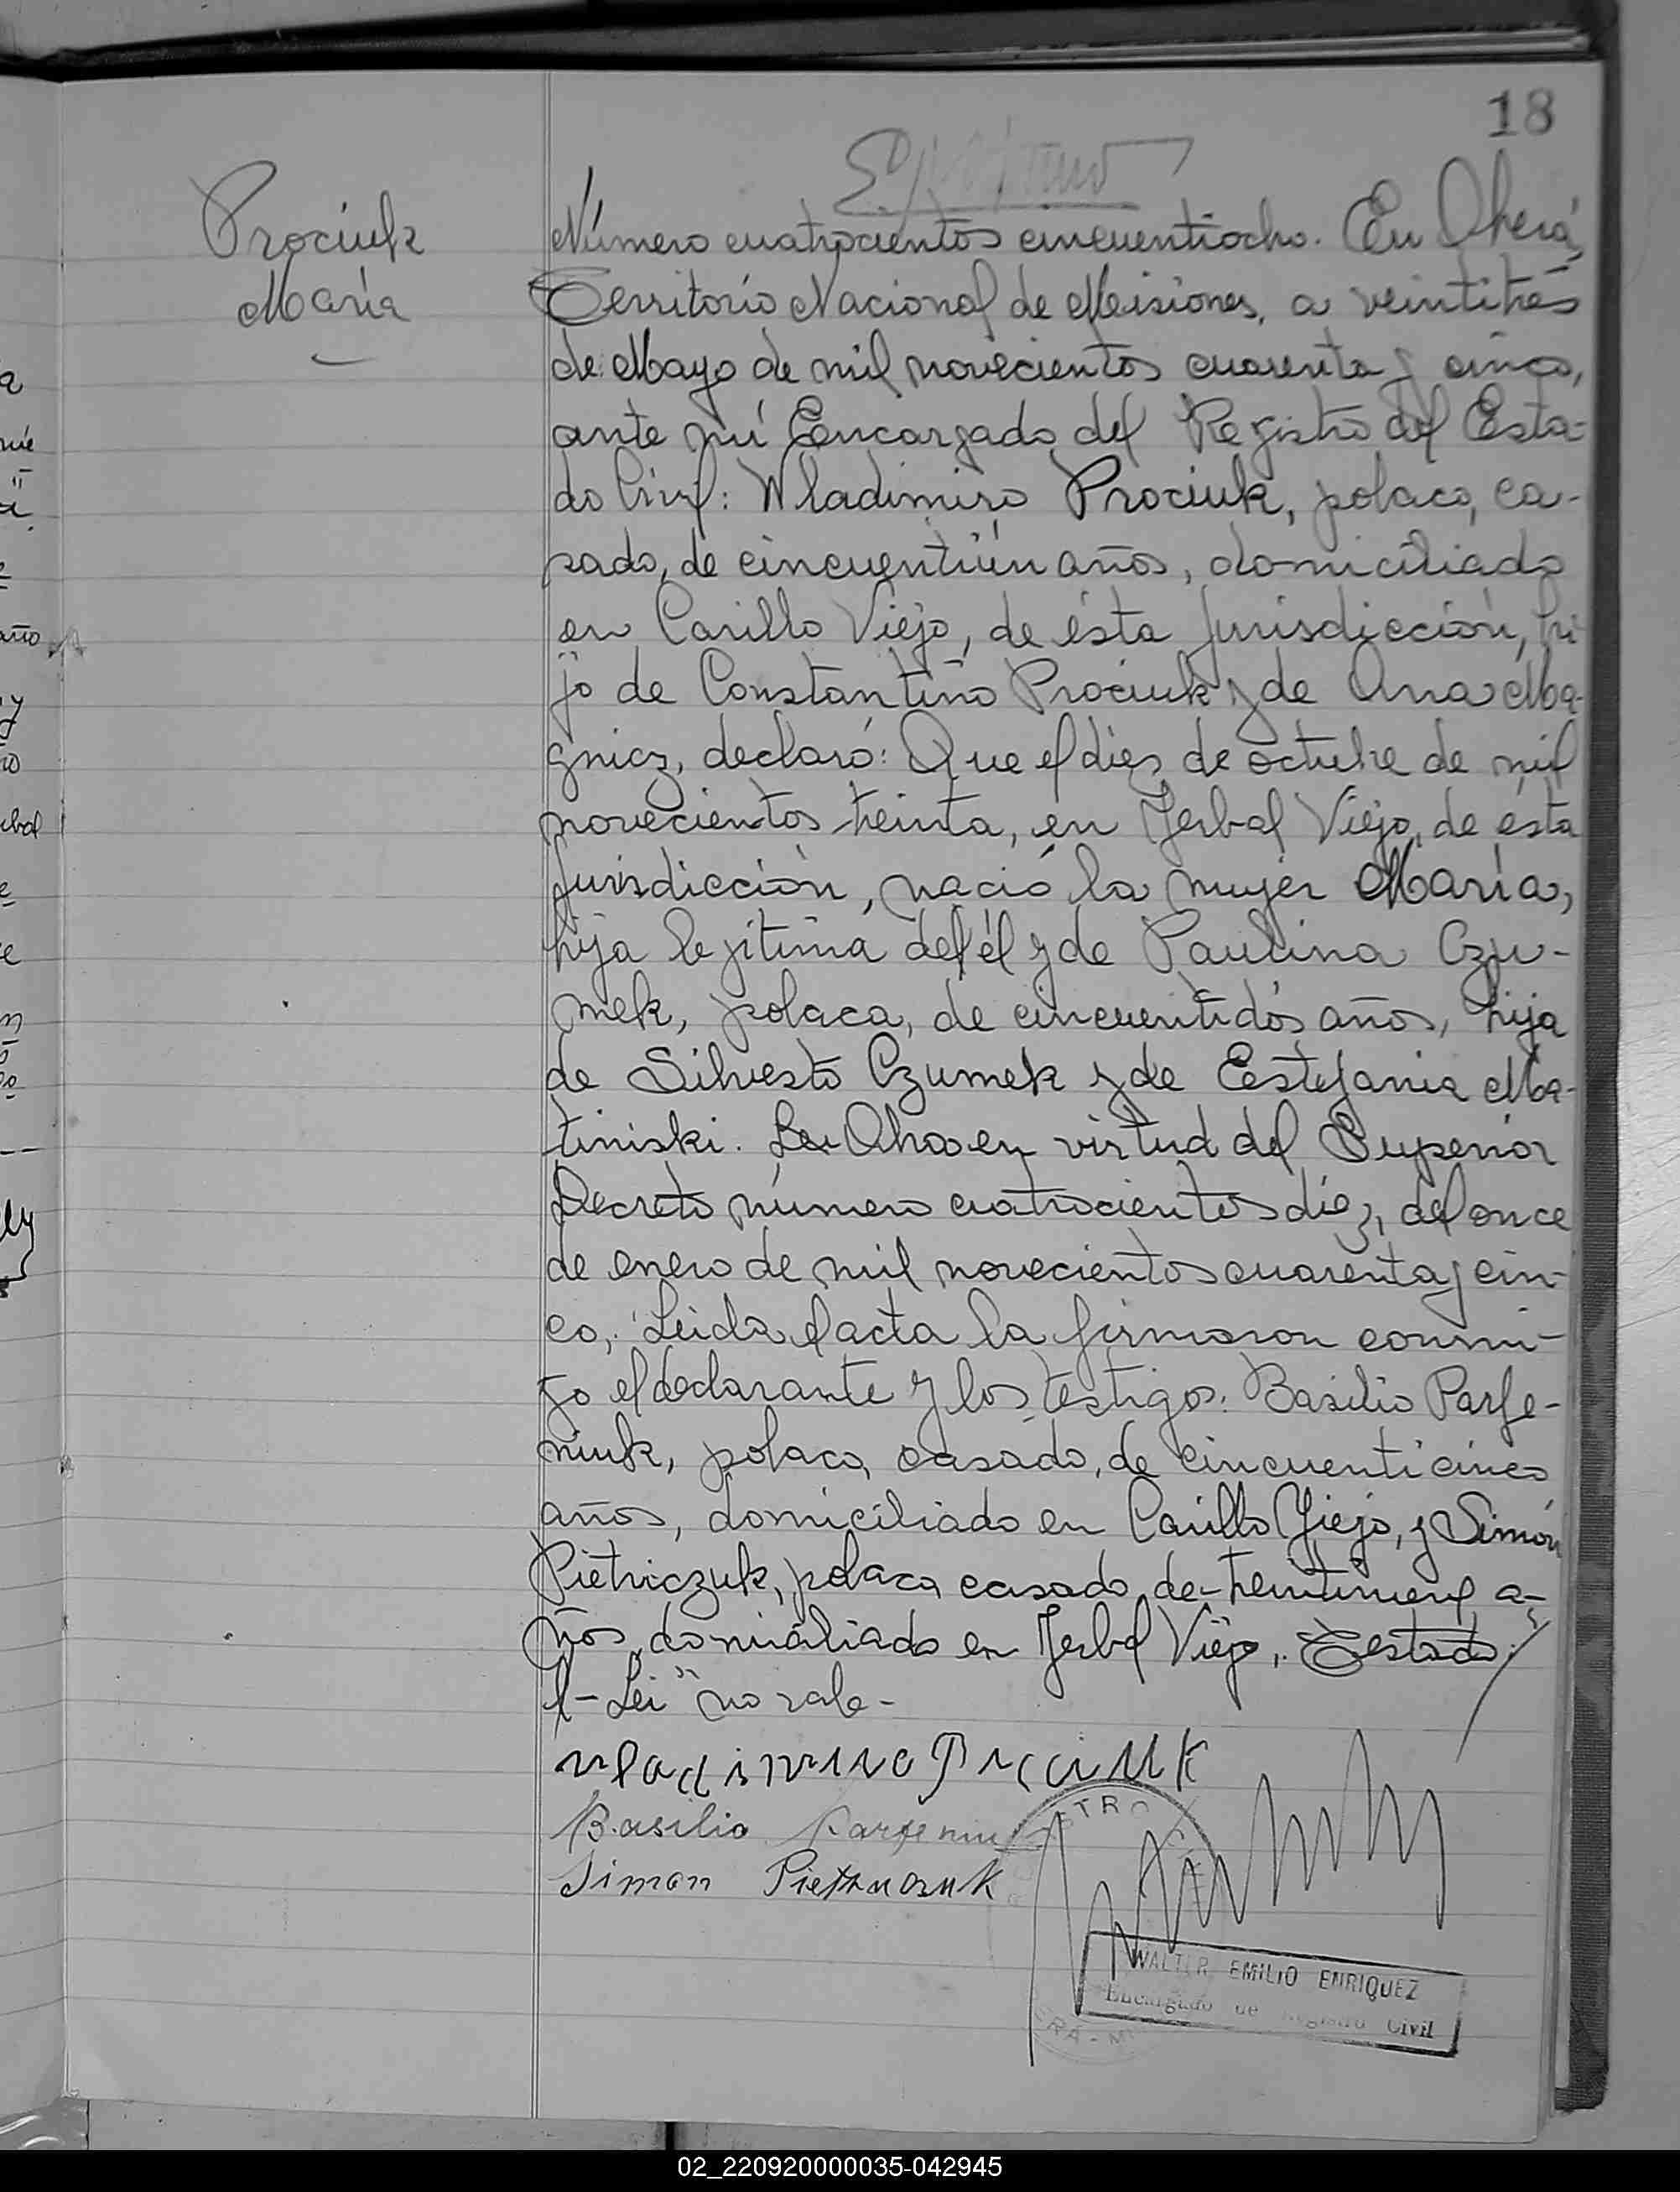 18
Prociuk
María
Número cuatrocientos cincuentiocho. En Oberá,
Territorio Nacional de Misiones, a veintitrés
de Mayo de mil novecientos cuarenta y cinco,
ante mí Encargado del Registro del Esta-
do Civil: Wladimiro Prociuk, polaco, ca-
sado, de cincuentiún años, domiciliado
en Carillo Viejo, de ésta Jurisdicción, hi-
jo de Constantino Prociuk y de Ana Ma-
gnicz, declaró: Que el diez de octubre de mil
novecientos treinta, en Yerbal Viejo, de ésta
Jurisdicción, nació la mujer María,
hija legítima de él y de Paulina Czu-
mek, polaca, de cincuentidós años, hija
de Silvestro Czumek y de Estefania Ma-
tiniski. en virtud del Superior
Decreto número cuatrocientos diez, del once
de enero de mil novecientos cuarenta y cin-
co, Leida el acta la firmaron conmi-
go el declarante y los testigos: Basilio Parfe-
niuk, polaco, casado, de cincuenticinco
años, domiciliado en Carillo Viejo, y Simón
Pietriczuk, polaco, casado, de treintinueve a-
ños, domiciliado en Yerbal Viejo,. Testado:
"Lei" no vale-
Basilio Parfeniuk
Simon
WALTER EMILIO ENRIQUEZ
Encargado de Registro Civil
02_220920000035-042945